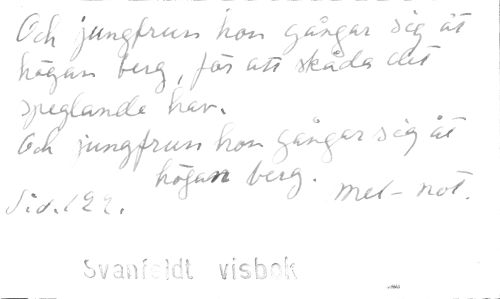 Och jungfrun hon gångar sig åt
högan berg, för att skåda det
speglande hav.
Och jungfrun hon gångar sig åt
högan berg.
mel-not.
Sid. 122.
Svanfeldt visbok